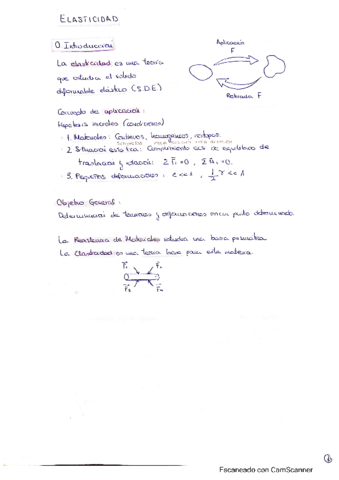 ELASTICIDAD
0. Introducción
Aplicación
F
La elasticidad es una teoría
que estudia el sólido
deformable elástico (S.D.E)
Retirada F
Concepto de aplicación:
Hipótesis iniciales (condiciones)
1. Materiales: Continuos, homogéneos, isótropos.
2. Situación estática: Cumplimiento ecs de equilibrio de
traslación y rotación: Σ F̄i = 0, Σ M̄i = 0.
3. Pequeñas deformaciones: ε <<< 1, 1/2 γ << 1
Objetivo General:
Determinación de tensiones y deformaciones en un punto determinado.
La Resistencia de Materiales estudia una barra prismática.
La Elasticidad es una teoría base para esta materia.
F̄1 F̄2
F̄3 F̄4
Escaneado con CamScanner